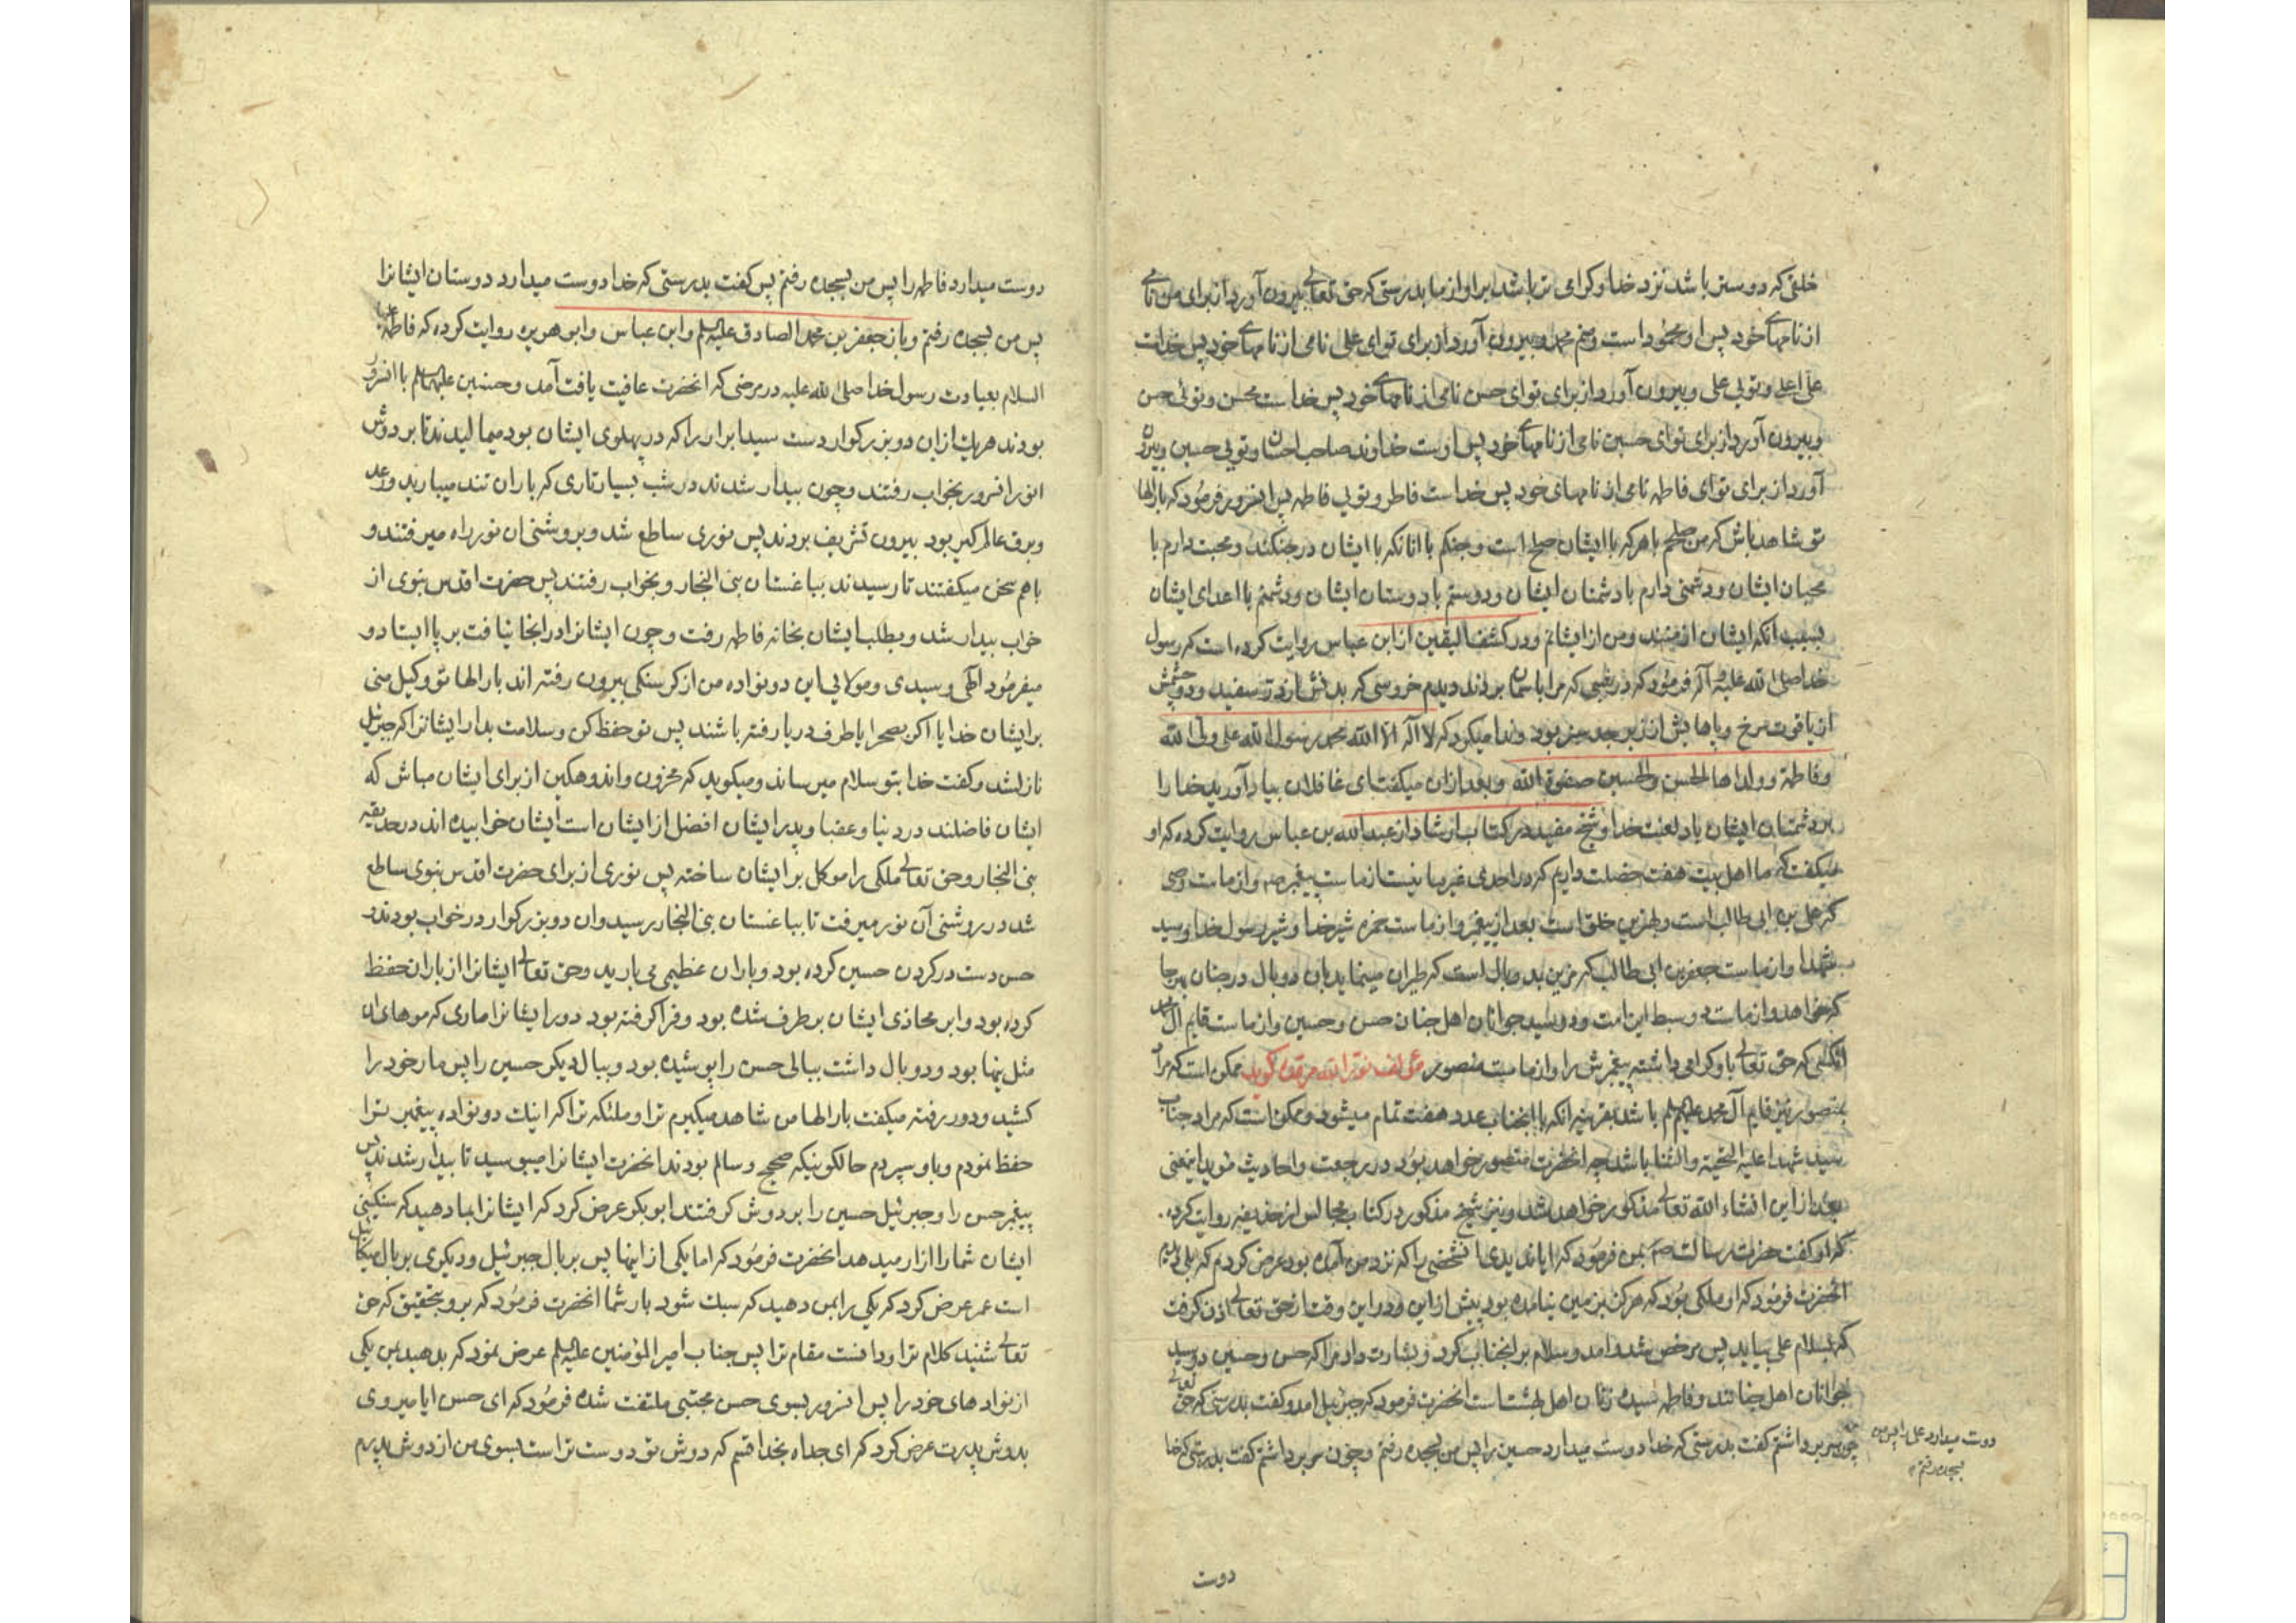 خلقی که دوستر باشد نزد خدا و گرامی تر باشد بر او از ما بدرستی که حق تعالی بیرون آورد از برای من نامی
از نامهای خود پس او محمود است و منم محمد و بیرون آورد از برای تو ای علی نامی از نامهای خود پس خداست
علی اعلی و تویی علی و بیرون آورد از برای تو ای حسن نامی از نامهای خود پس خداست محسن و توئی حسن
و بیرون آورد از برای تو ای حسین نامی از نامهای خود پس اوست خداوند صاحب احسان و تویی حسین و بیرون
آورد از برای تو ای فاطمه نامی از نامهای خود پس خداست فاطر و تویی فاطمه پس انسرور فرمود که بارالها
تو شاهد باش که من صلحم با هر که با ایشان صلح است و جنگم با انانکه با ایشان در جنگند و محبت دارم با
محبان ایشان و دشمنی دارم با دشمنان ایشان و دوستم با دوستان ایشان و دشمنم با اعدای ایشان
بسبب آنکه ایشان از منند و من از ایشانم و در کشف الیقین از ابن عباس روایت کرده است که رسول
خدا صلی الله علیه و آله فرمود که در شبی که مرا باسمان بردند دیدم خروسی که بدنش از در سفید و دو چشمش
از یاقوت سرخ و پاهایش از زبرجد سبز بود و ندا میکرد که لا اله الا الله محمد رسول الله علی ولی الله
و فاطمة و ولداها الحسن و الحسین صفوة الله و بعد از ان میکفت ای غافلان بیاد آورید خدا را
بر دشمنان ایشان باد لعنت خدا و شیخ مفید در کتاب ارشاد از عبدالله بن عباس روایت کرده که او
میکفت که ما اهل بیت هفت خصلت داریم که در احدی غیر ما نیست از ماست پیغمبر ص و از ماست وصی
که علی بن ابی طالب است و بهترین خلق است بعد از پیغمبر و از ماست حمزه شیر خدا و شیر رسول خدا و سید
شهدا و از ماست جعفر بن ابی طالب که مزین بدو بال است که طیران مینماید بان دو بال در جنان بهر جا
که خواهد و از ماست دو سبط این امت و دو سید جوانان اهل جنان حسن و حسین و از ماست قایم آل محمد
انکسی که حق تعالی باو گرامی داشته پیغمبرش را و از ماست منصور مؤلف نور الله مرقده گوید ممکن است که مراد
بمنصور نیز قایم آل محمد علیهم السلم باشد بقرینه انکه با انجناب عدد هفت تمام میشود و ممکن است که مراد جناب
سید شهدا علیه التحیة و الثنا باشد چه انحضرت منصور خواهد بود در رجعت و احادیث مؤید اینمعنی
بعد از این انشاء الله تعالی مذکور خواهد شد و نیز شیخ مذکور در کتاب مجالس از حذیفه روایت کرده
که او گفت حضرت رسالت ص بمن فرمود که ایا ندیدی انشخصی را که نزد من آمده بود عرض کردم که بلی دیدم
انحضرت فرمود که او ملکی بود که هرگز بزمین نیامده بود پیش از این و در این وقت از حق تعالی اذن کرفت
که بسلام علی بیاید پس مرخص شد و امد و سلام بر انجناب کرد و بشارت داد مرا که حسن و حسین دو سید
جوانان اهل جنانند و فاطمه سیده زنان اهل بهشت است انحضرت فرمود که جبرئیل امد و گفت بدرستی که حق تعالی
دوست میدارد علی را پس من بسجده رفتم
چون سر برداشتم گفت بدرستی که خدا دوست میدارد حسین را پس من بسجده رفتم و چون سر برداشتم گفت بدرستی که خدا
دوست
دوست میدارد فاطمه را پس من بسجده رفتم پس گفت بدرستی که خدا دوست میدارد دوستان ایشانرا
پس من بسجده رفتم و باز جعفر بن محمد الصادق علیه السلم و ابن عباس و ابو هریره روایت کرده که فاطمه علیها
السلام بعیادت رسول خدا صلی الله علیه در مرضی که انحضرت عافیت یافت آمد و حسنین علیهما السلم با انسرور
بودند هر یک از این دو بزرکوار دست سید ابرار را که در پهلوی ایشان بود میمالیدند تا بر دوش
انور انسرور بخواب رفتند و چون بیدار شدند در شب بسیار تاری که باران تند میبارید و رعد
و برق عالم کیر بود بیرون تشریف بردند پس نوری ساطع شد و بروشنی ان نور راه میرفتند و
با هم سخن میکفتند تا رسیدند بباغستان بنی النجار و بخواب رفتند پس حضرت اقدس نبوی از
خواب بیدار شد و بطلب ایشان بخانه فاطمه رفت و چون ایشانرا در انجا نیافت بر پا ایستاد و
میفرمود الهی و سیدی و مولایی این دو نواده من از کرسنکی بیرون رفته اند بارالها تو وکیل منی
بر ایشان خدایا اکر بصحرا یا طرف دریا رفته باشند پس تو حفظ کن و سلامت بدار ایشانرا که جبرئیل
نازلشد و کفت خدا بتو سلام میرساند و میکوید که محزون و اندوهکین از برای ایشان مباش که
ایشان فاضلند در دنیا و عقبا و پدر ایشان افضل از ایشان است ایشان خوابیده اند در حدیقه
بنی النجار و حق تعالی ملکی را موکل بر ایشان ساخته پس نوری از برای حضرت اقدس نبوی ساطع
شد در روشنی آن نور میرفت تا بباغستان بنی النجار رسید و ان دو بزرکوار در خواب بودند و
حسن دست در کردن حسین کرده بود و باران عظیمی می بارید و حق تعالی ایشانرا از باران حفظ
کرده بود و ابر محاذی ایشان بر طرف شده بود و فرا کرفته بود دور ایشانرا ماری که موهای ان
مثل نیها بود و دو بال داشت ببالی حسن را پوشیده بود و ببال دیکر حسین را پس مار خود را
کشید و دور رفته میکفت بارالها من شاهد میکیرم ترا و ملئکه ترا که اینک دو نواده پیغمبر ترا
حفظ نمودم و باو سپردم حالکونیکه صحیح و سالم بودند انحضرت ایشانرا میبوسید تا بیدار شدند پس
پیغمبر حسن را و جبرئیل حسین را بر دوش کرفتند ابوبکر عرض کرد که ایشانرا بما دهید که سنکینی
ایشان شما را ازار میدهد انحضرت فرمود که اما یکی از اینها پس بر بال جبرئیل و دیکری بر بال میکائیل
است عمر عرض کرد که یکی را بمن دهید که سبک شود بار شما انحضرت فرمود که برو بتحقیق که حق
تعالی شنید کلام ترا و دانست مقام ترا پس جناب امیر المؤمنین علیه السلم عرض نمود که بدهید بمن یکی
از نوادهای خود را پس انسرور بسوی حسن مجتبی ملتفت شده فرمود که ای حسن ایا میروی
بدوش پدرت عرض کرد که ای جداه بخدا قسم که دوش تو دوست تر است بسوی من از دوش پدرم